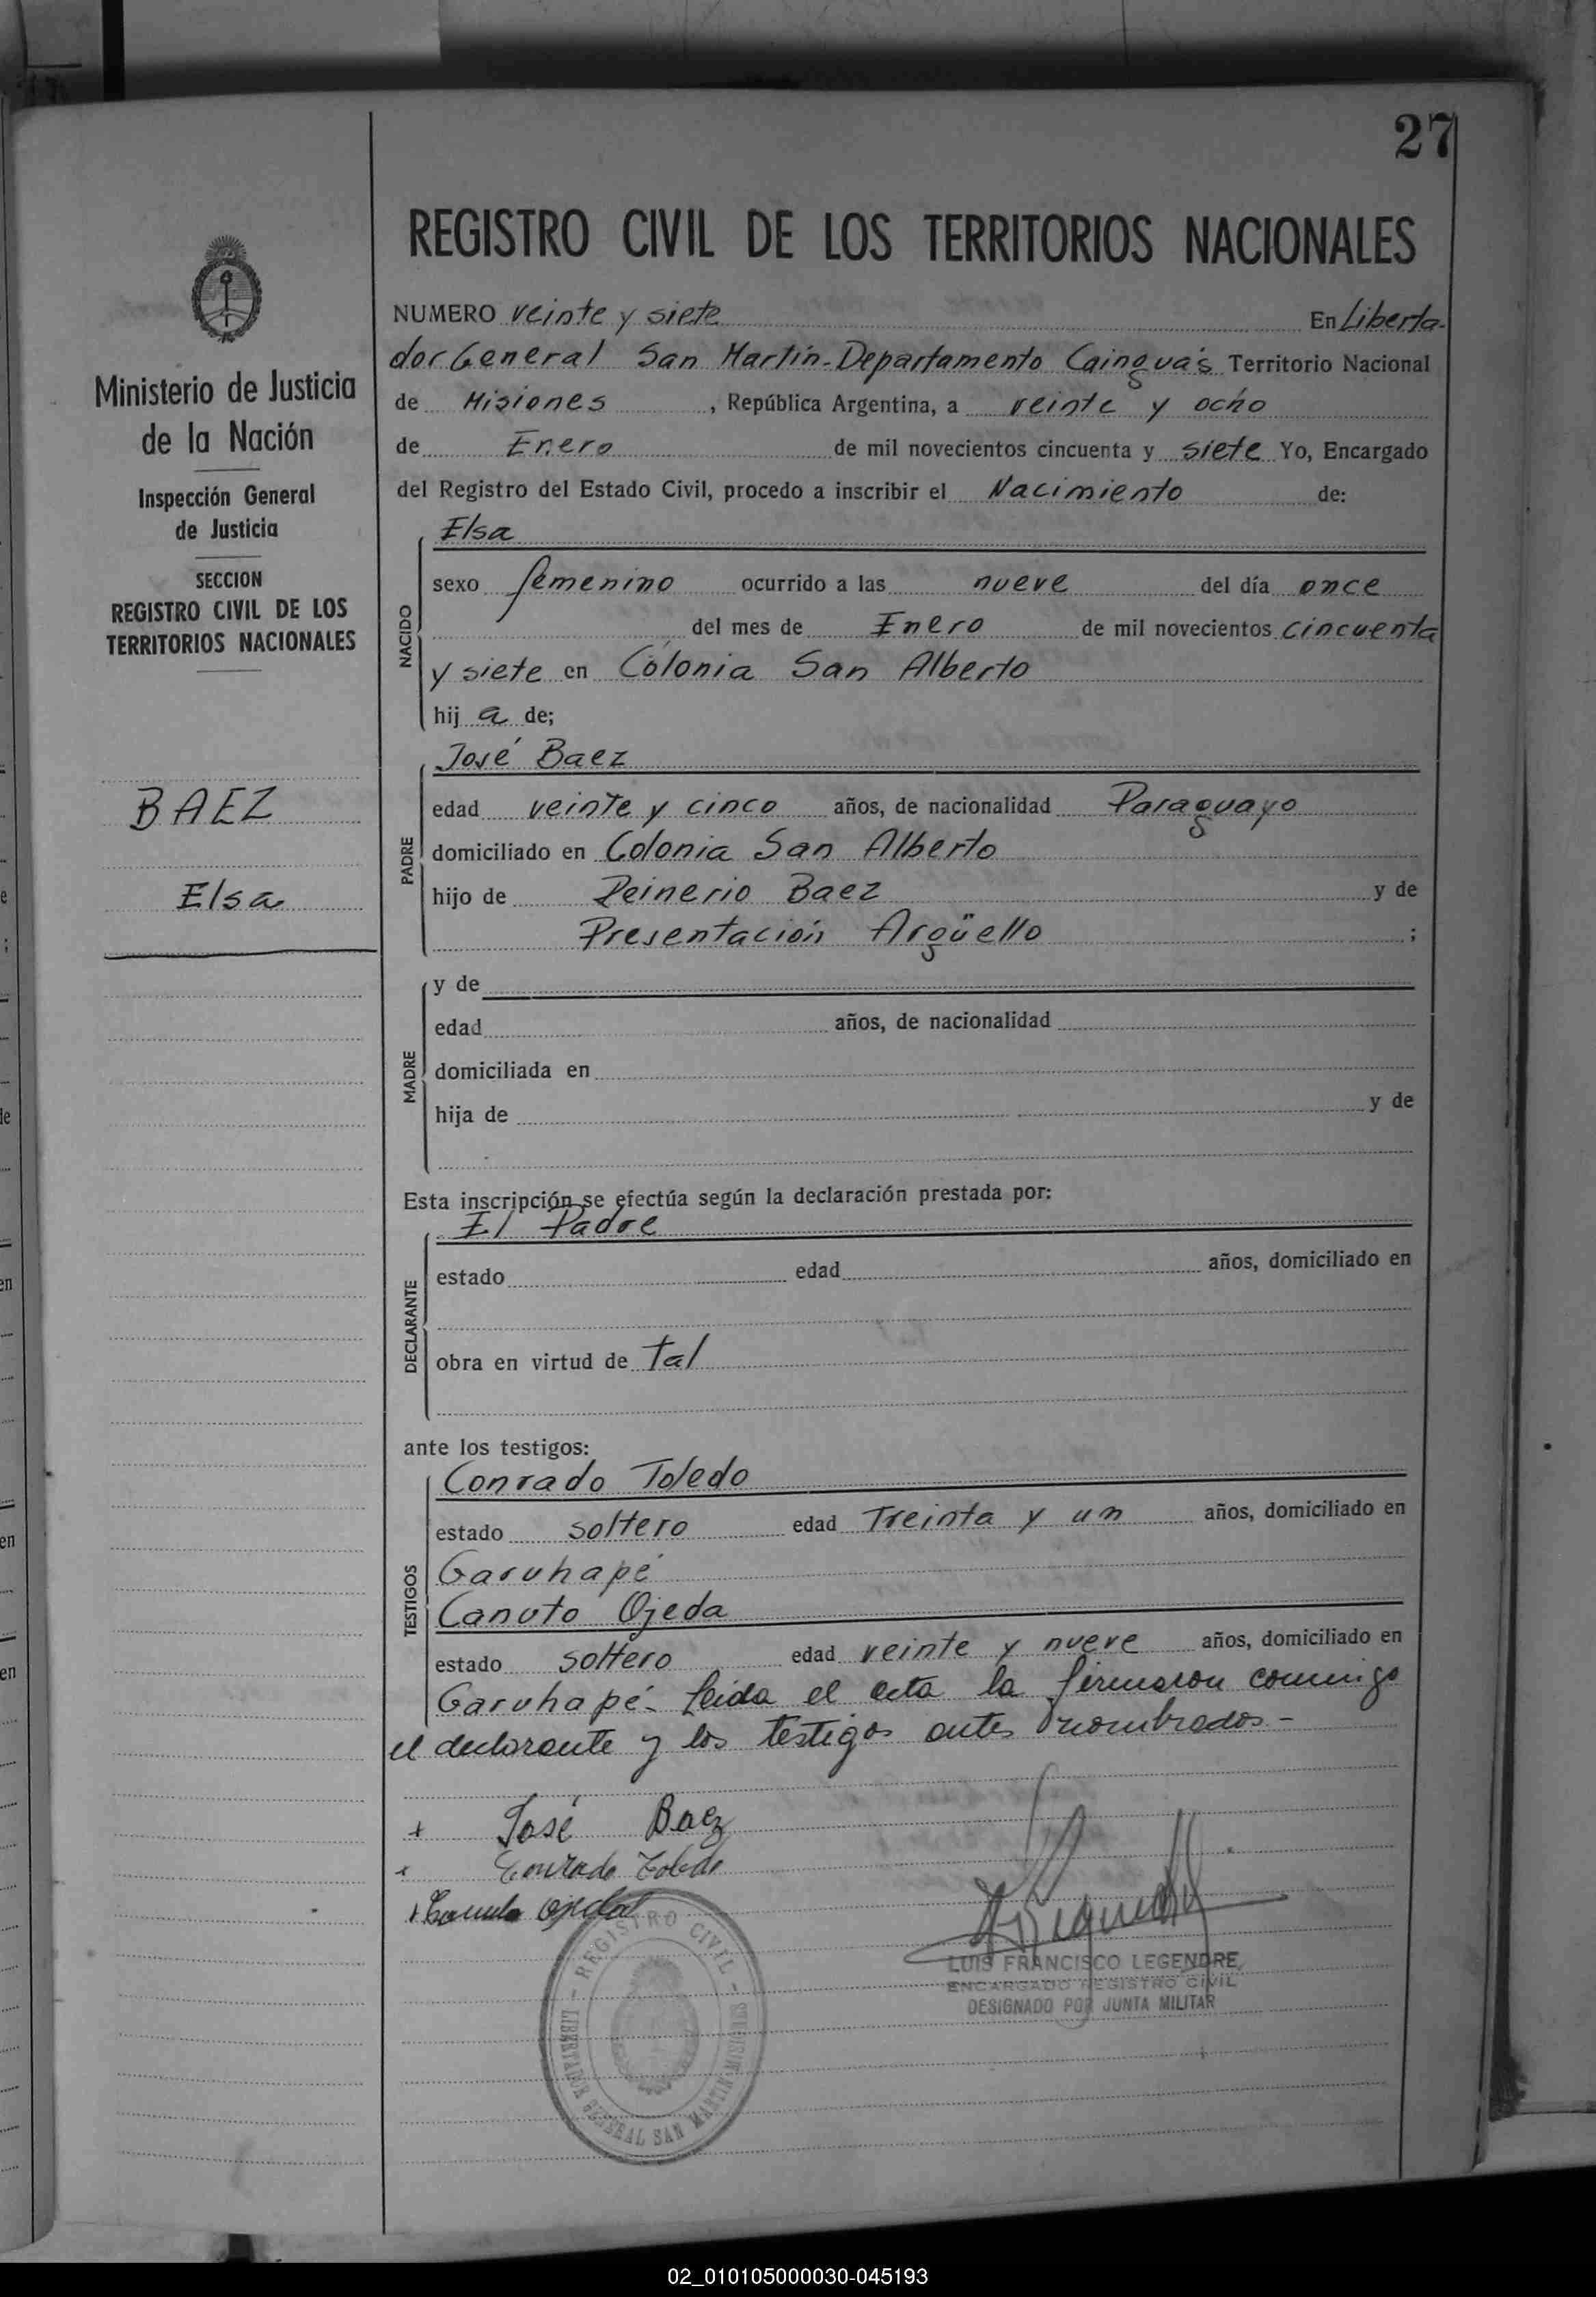 27
REGISTRO CIVIL DE LOS TERRITORIOS NACIONALES
Ministerio de Justicia
de la Nación
Inspección General
de Justicia
SECCION
REGISTRO CIVIL DE LOS
TERRITORIOS NACIONALES
BAEZ
Elsa
NUMERO veinte y siete En Liberta-
dor General San Martín-Departamento Cainguás Territorio Nacional
de Misiones, República Argentina, a veinte y ocho
de Enero de mil novecientos cincuenta y siete Yo, Encargado
del Registro del Estado Civil, procedo a inscribir el Nacimiento de:
NACIDO
Elsa
sexo femenino ocurrido a las nueve del día once
del mes de Enero de mil novecientos cincuenta
y siete en Colonia San Alberto
hij a de;
PADRE
José Baez
edad veinte y cinco años, de nacionalidad Paraguayo
domiciliado en Colonia San Alberto
hijo de Deinerio Baez y de
Presentación Argüello ;
MADRE
y de
edad años, de nacionalidad
domiciliada en
hija de y de
Esta inscripción se efectúa según la declaración prestada por:
DECLARANTE
El Padre
estado edad años, domiciliado en
obra en virtud de tal
ante los testigos:
TESTIGOS
Conrado Toledo
estado soltero edad Treinta y un años, domiciliado en
Garuhapé
Canuto Ojeda
estado soltero edad veinte y nueve años, domiciliado en
Garuhapé- Leida el acta la firmaron conmigo
el declarante y los testigos antes nombrados-
+ José Baez
Conrado Toledo
Canuto Ojeda
REGISTRO CIVIL
LIBERTADOR GENERAL SAN MARTIN - MISIONES
LUIS FRANCISCO LEGENDRE
ENCARGADO REGISTRO CIVIL
DESIGNADO POR JUNTA MILITAR
02_010105000030-045193